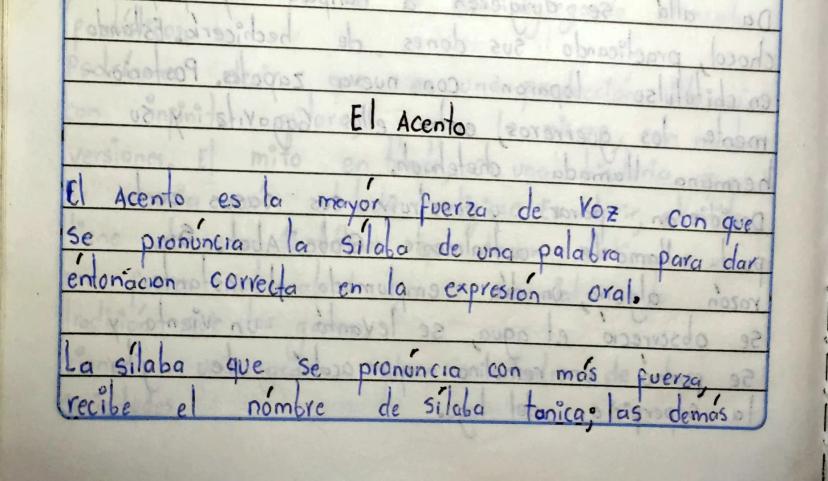 El Acento
El Acento es la mayór fuerza de voz con que
se pronúncia la sílaba de una palabra para dar
éntonácion correcta en la expresión oral.
La sílaba que se pronúncia con más fuerza,
recibe el nómbre de sílaba tanica; las demás